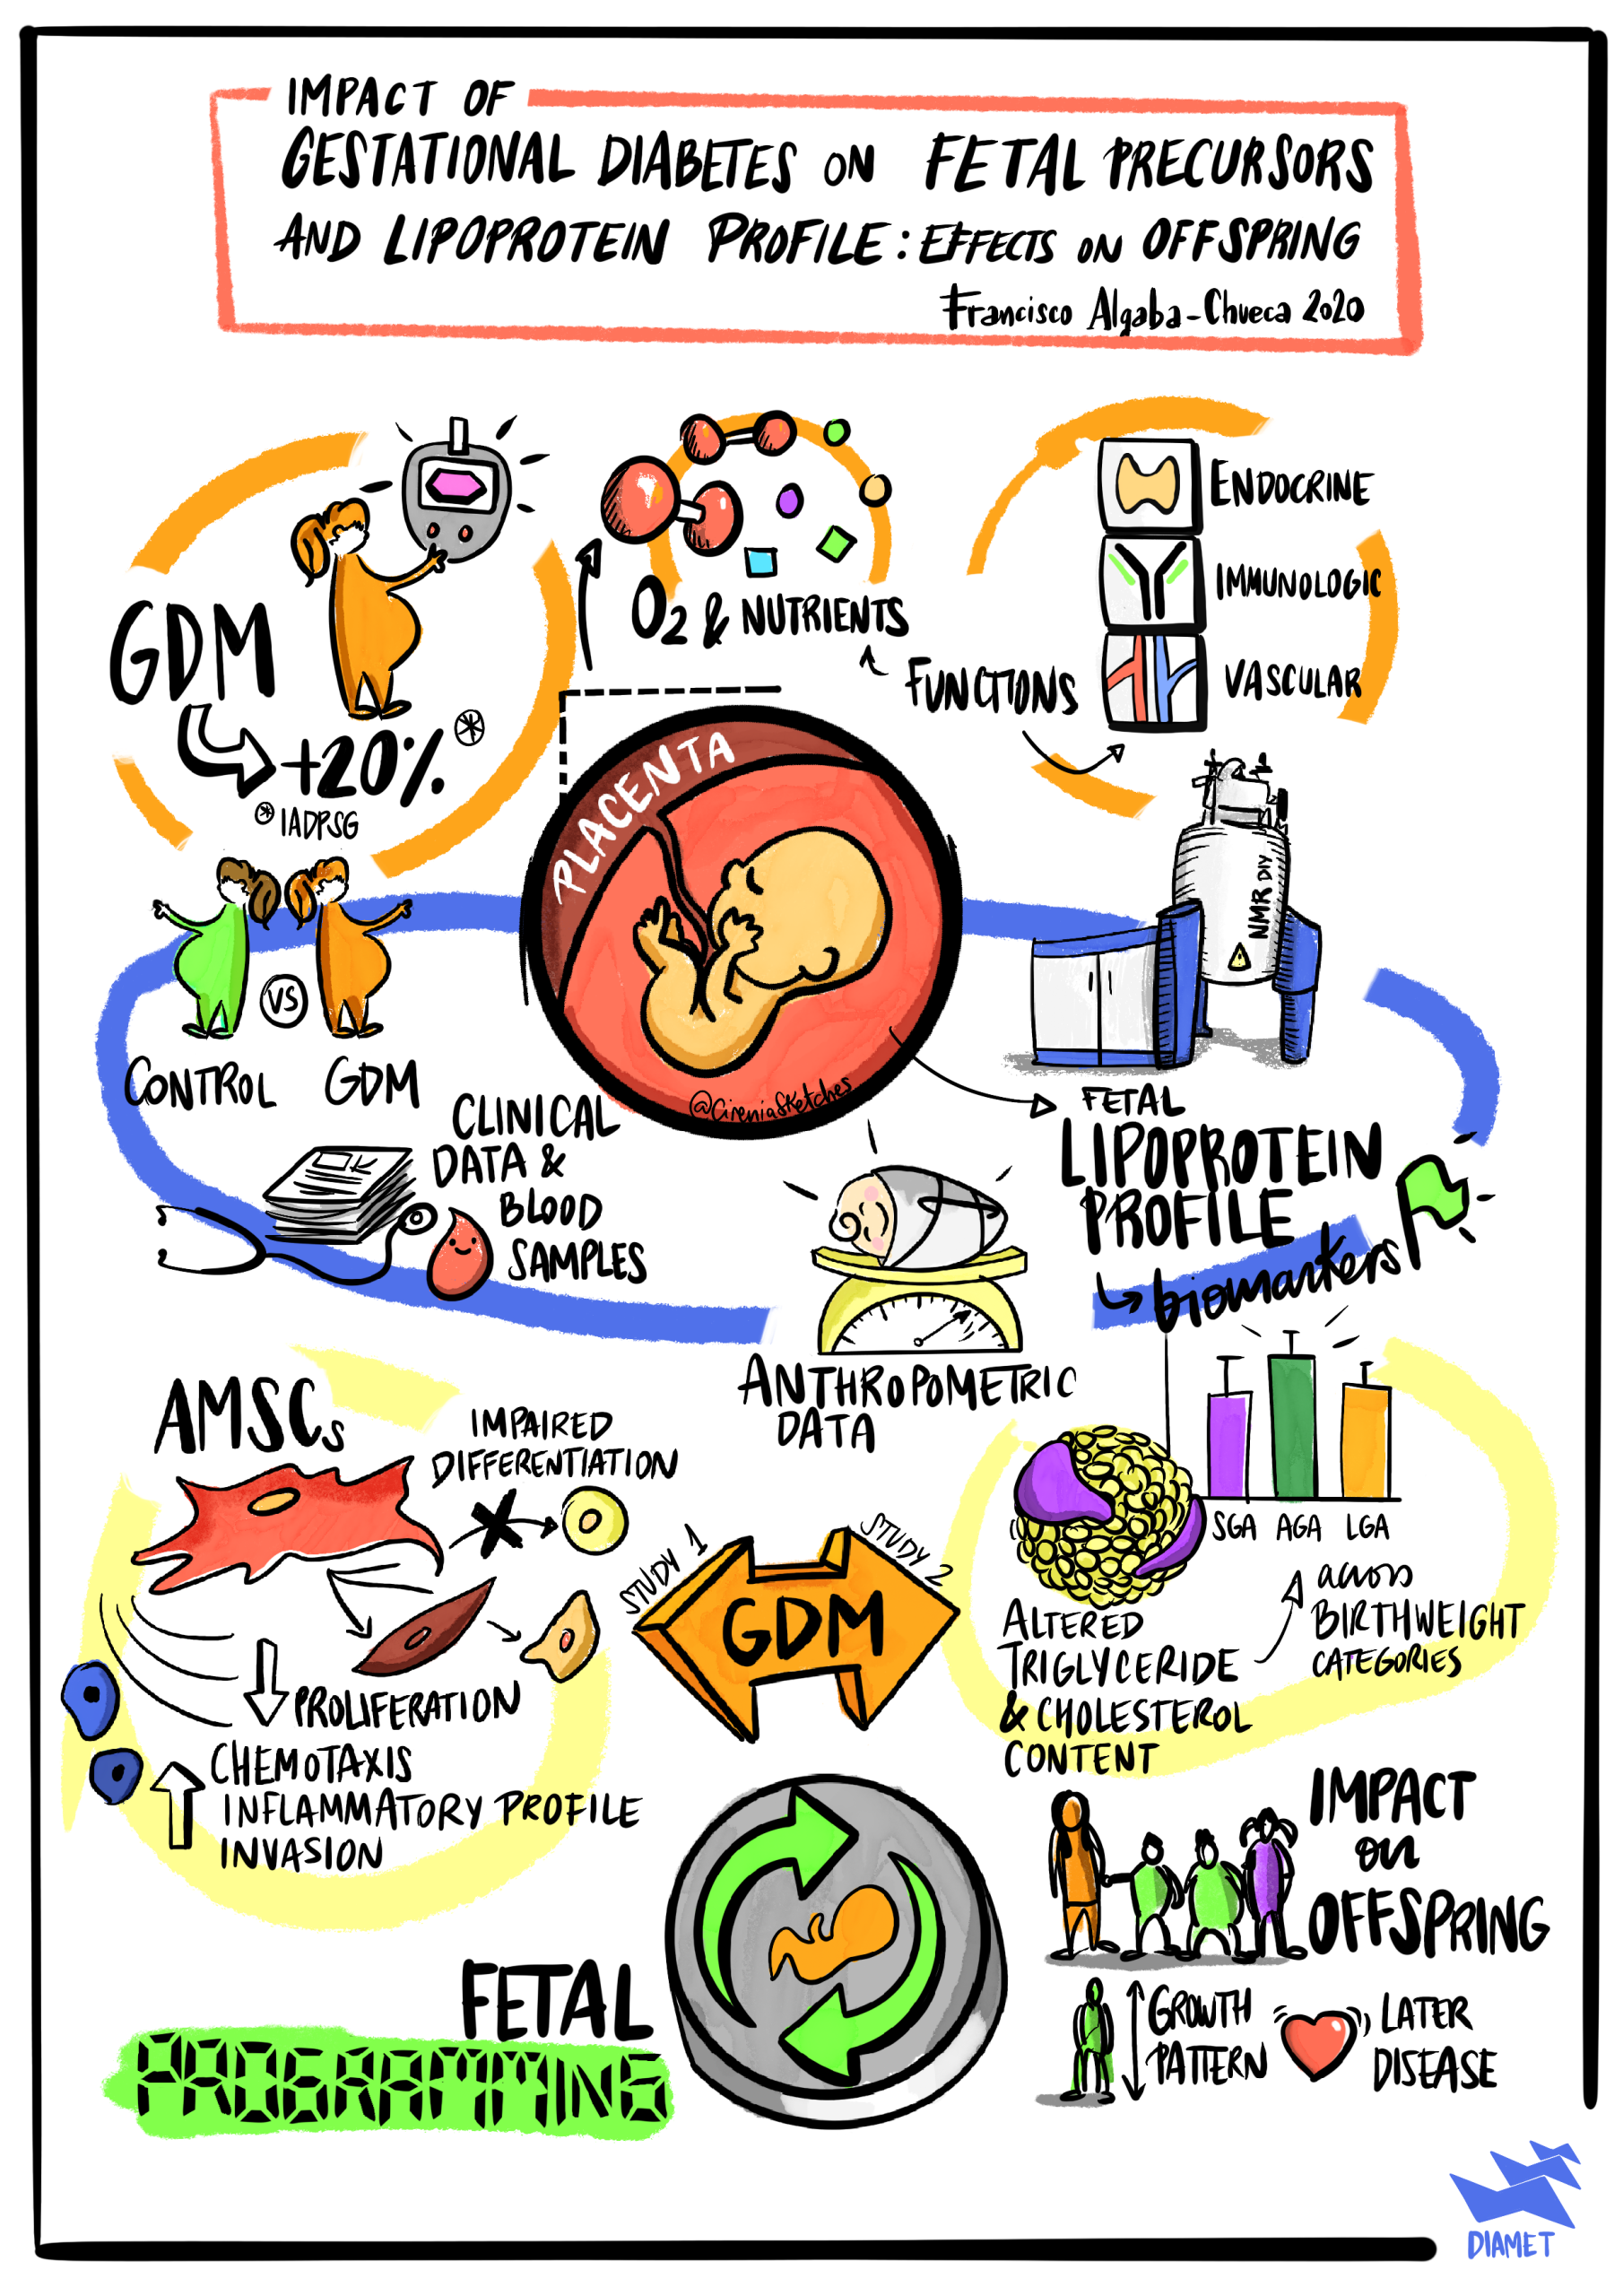 IMPACT OF
GESTATIONAL DIABETES ON FETAL PRECURSORS
AND LIPOPROTEIN PROFILE: EFFECTS ON OFFSPRING
Francisco Algaba-Chueca 2020
GDM
+20%*
* IADPSG
O2 & NUTRIENTS
FUNCTIONS
ENDOCRINE
IMMUNOLOGIC
VASCULAR
PLACENTA
@CireniaSketches
NMR DIY
VS
CONTROL GDM
CLINICAL
DATA &
BLOOD
SAMPLES
FETAL
LIPOPROTEIN
PROFILE
biomarkers
ANTHROPOMETRIC
DATA
AMSCs
IMPAIRED
DIFFERENTIATION
PROLIFERATION
CHEMOTAXIS
INFLAMMATORY PROFILE
INVASION
STUDY 1
STUDY 2
GDM
SGA AGA LGA
across
BIRTHWEIGHT
CATEGORIES
ALTERED
TRIGLYCERIDE
& CHOLESTEROL
CONTENT
FETAL
PROGRAMMING
IMPACT
on
OFFSPRING
GROWTH
PATTERN
LATER
DISEASE
DIAMET